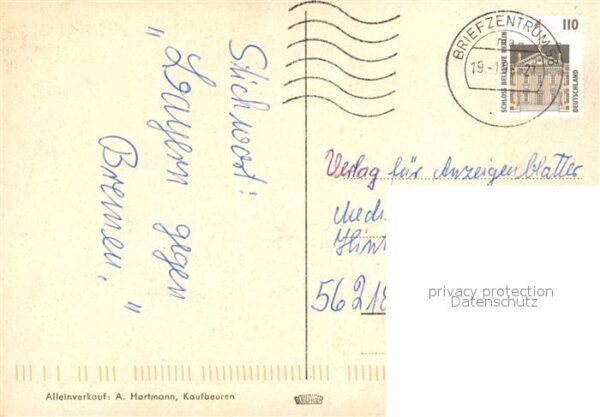 Stichwort:
"Bayern gegen
Bremen."
BRIEFZENTRUM
19.-1
110
SCHLOSS BELLEVUE BERLIN
DEUTSCHLAND
Verlag für Anzeigenblätter
56218
privacy protection
Datenschutz
Alleinverkauf: A. Hartmann, Kaufbeuren